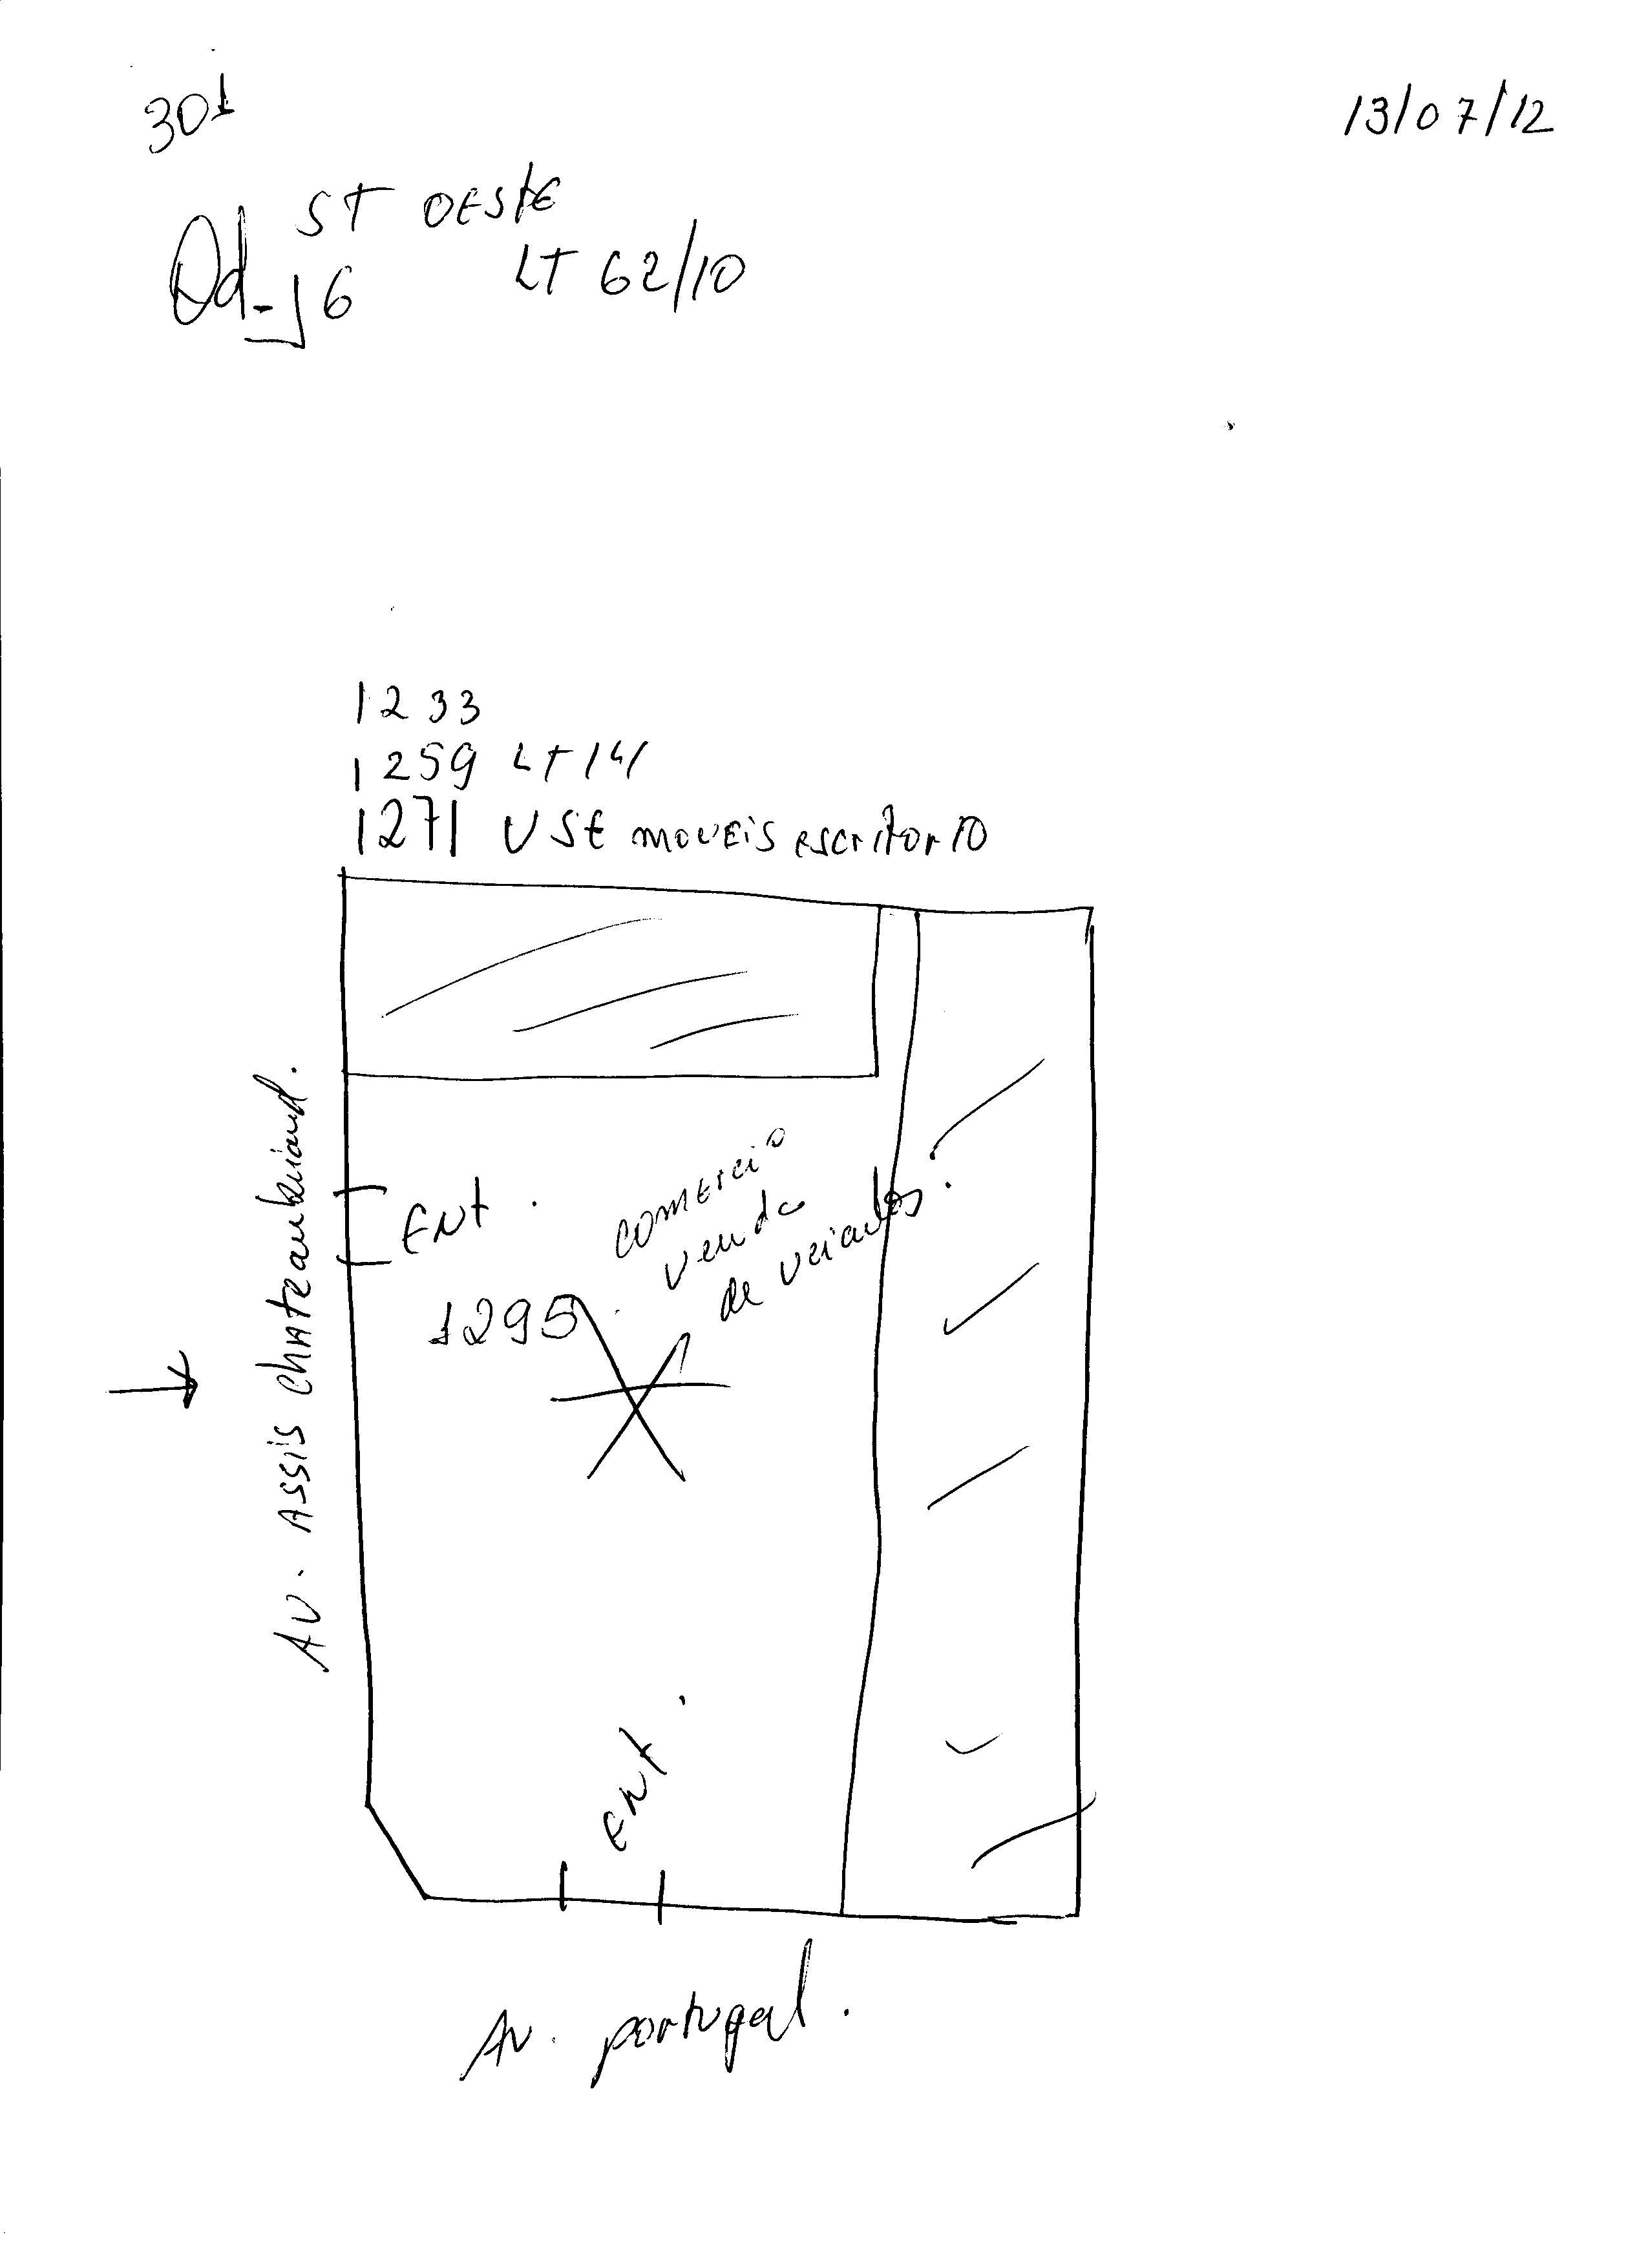 301
13/07/12
ST OESTE
Qd-J6 LT 62/10
1233
1259 LT 14
1271 USE MOVEIS escritorio
AV. ASSIS Chateaubriand.
ENt.
comercio
venda
de veiculos.
1295
ENt.
Av. portugal.